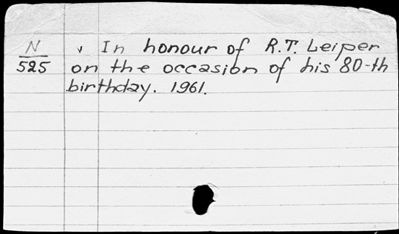 N v In honour of R.T. Leiper
525 on the occasion of his 80-th
birthday. 1961.